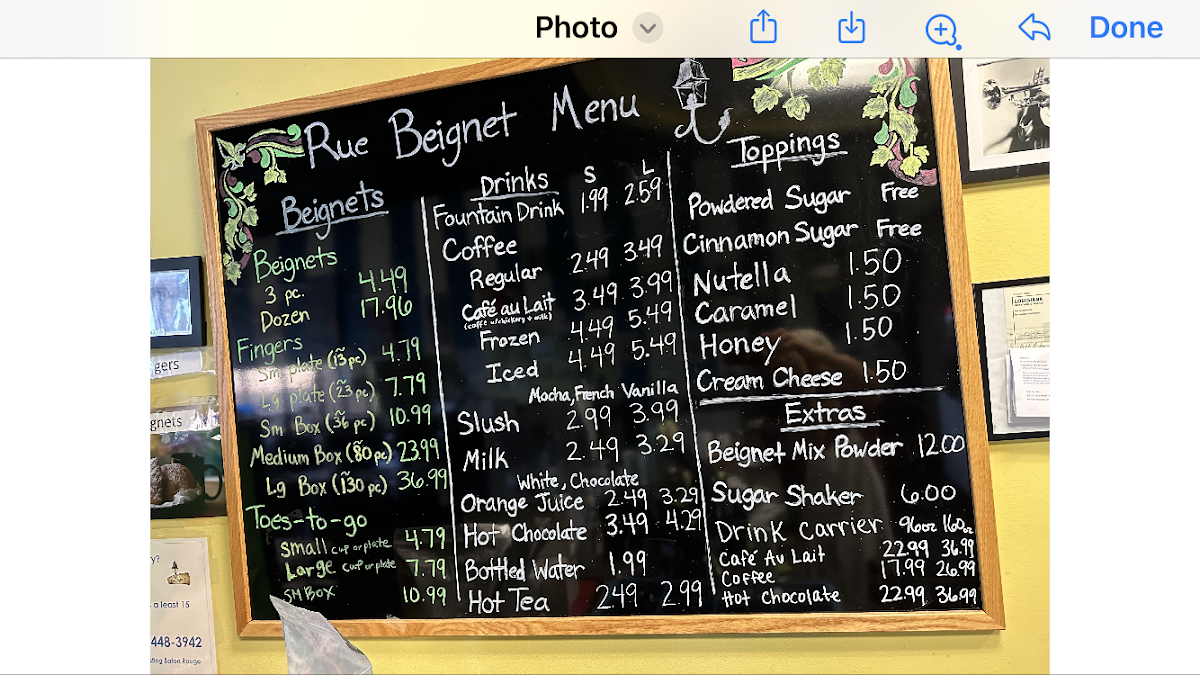 Photo
Done
Rue Beignet Menu
Beignets
Beignets
3 pc. 4.49
Dozen 17.96
Fingers
Sm plate (~13 pc) 4.79
Lg plate (~23 pc) 7.79
Sm Box (~36 pc) 10.99
Medium Box (~80 pc) 23.99
Lg Box (~130 pc) 36.99
Toes-to-go
Small cup or plate 4.79
Large cup or plate 7.79
SM Box 10.99
Drinks S L
Fountain Drink 1.99 2.59
Coffee
Regular 2.49 3.49
Café au Lait 3.49 3.99
Frozen 4.49 5.49
Iced 4.49 5.49
Mocha, French Vanilla
Slush 2.99 3.99
Milk 2.49 3.29
White, Chocolate
Orange Juice 2.49 3.29
Hot Chocolate 3.49 4.29
Bottled Water 1.99
Hot Tea 2.49 2.99
Toppings
Powdered Sugar Free
Cinnamon Sugar Free
Nutella 1.50
Caramel 1.50
Honey 1.50
Cream Cheese 1.50
Extras
Beignet Mix Powder 12.00
Sugar Shaker 6.00
Drink Carrier 96oz 160oz
Café Au Lait 22.99 36.99
Coffee 17.99 26.99
Hot Chocolate 22.99 36.99
gers
gnets
y?
a least 15
448-3942
sting Baton Rouge
LOUISIANA